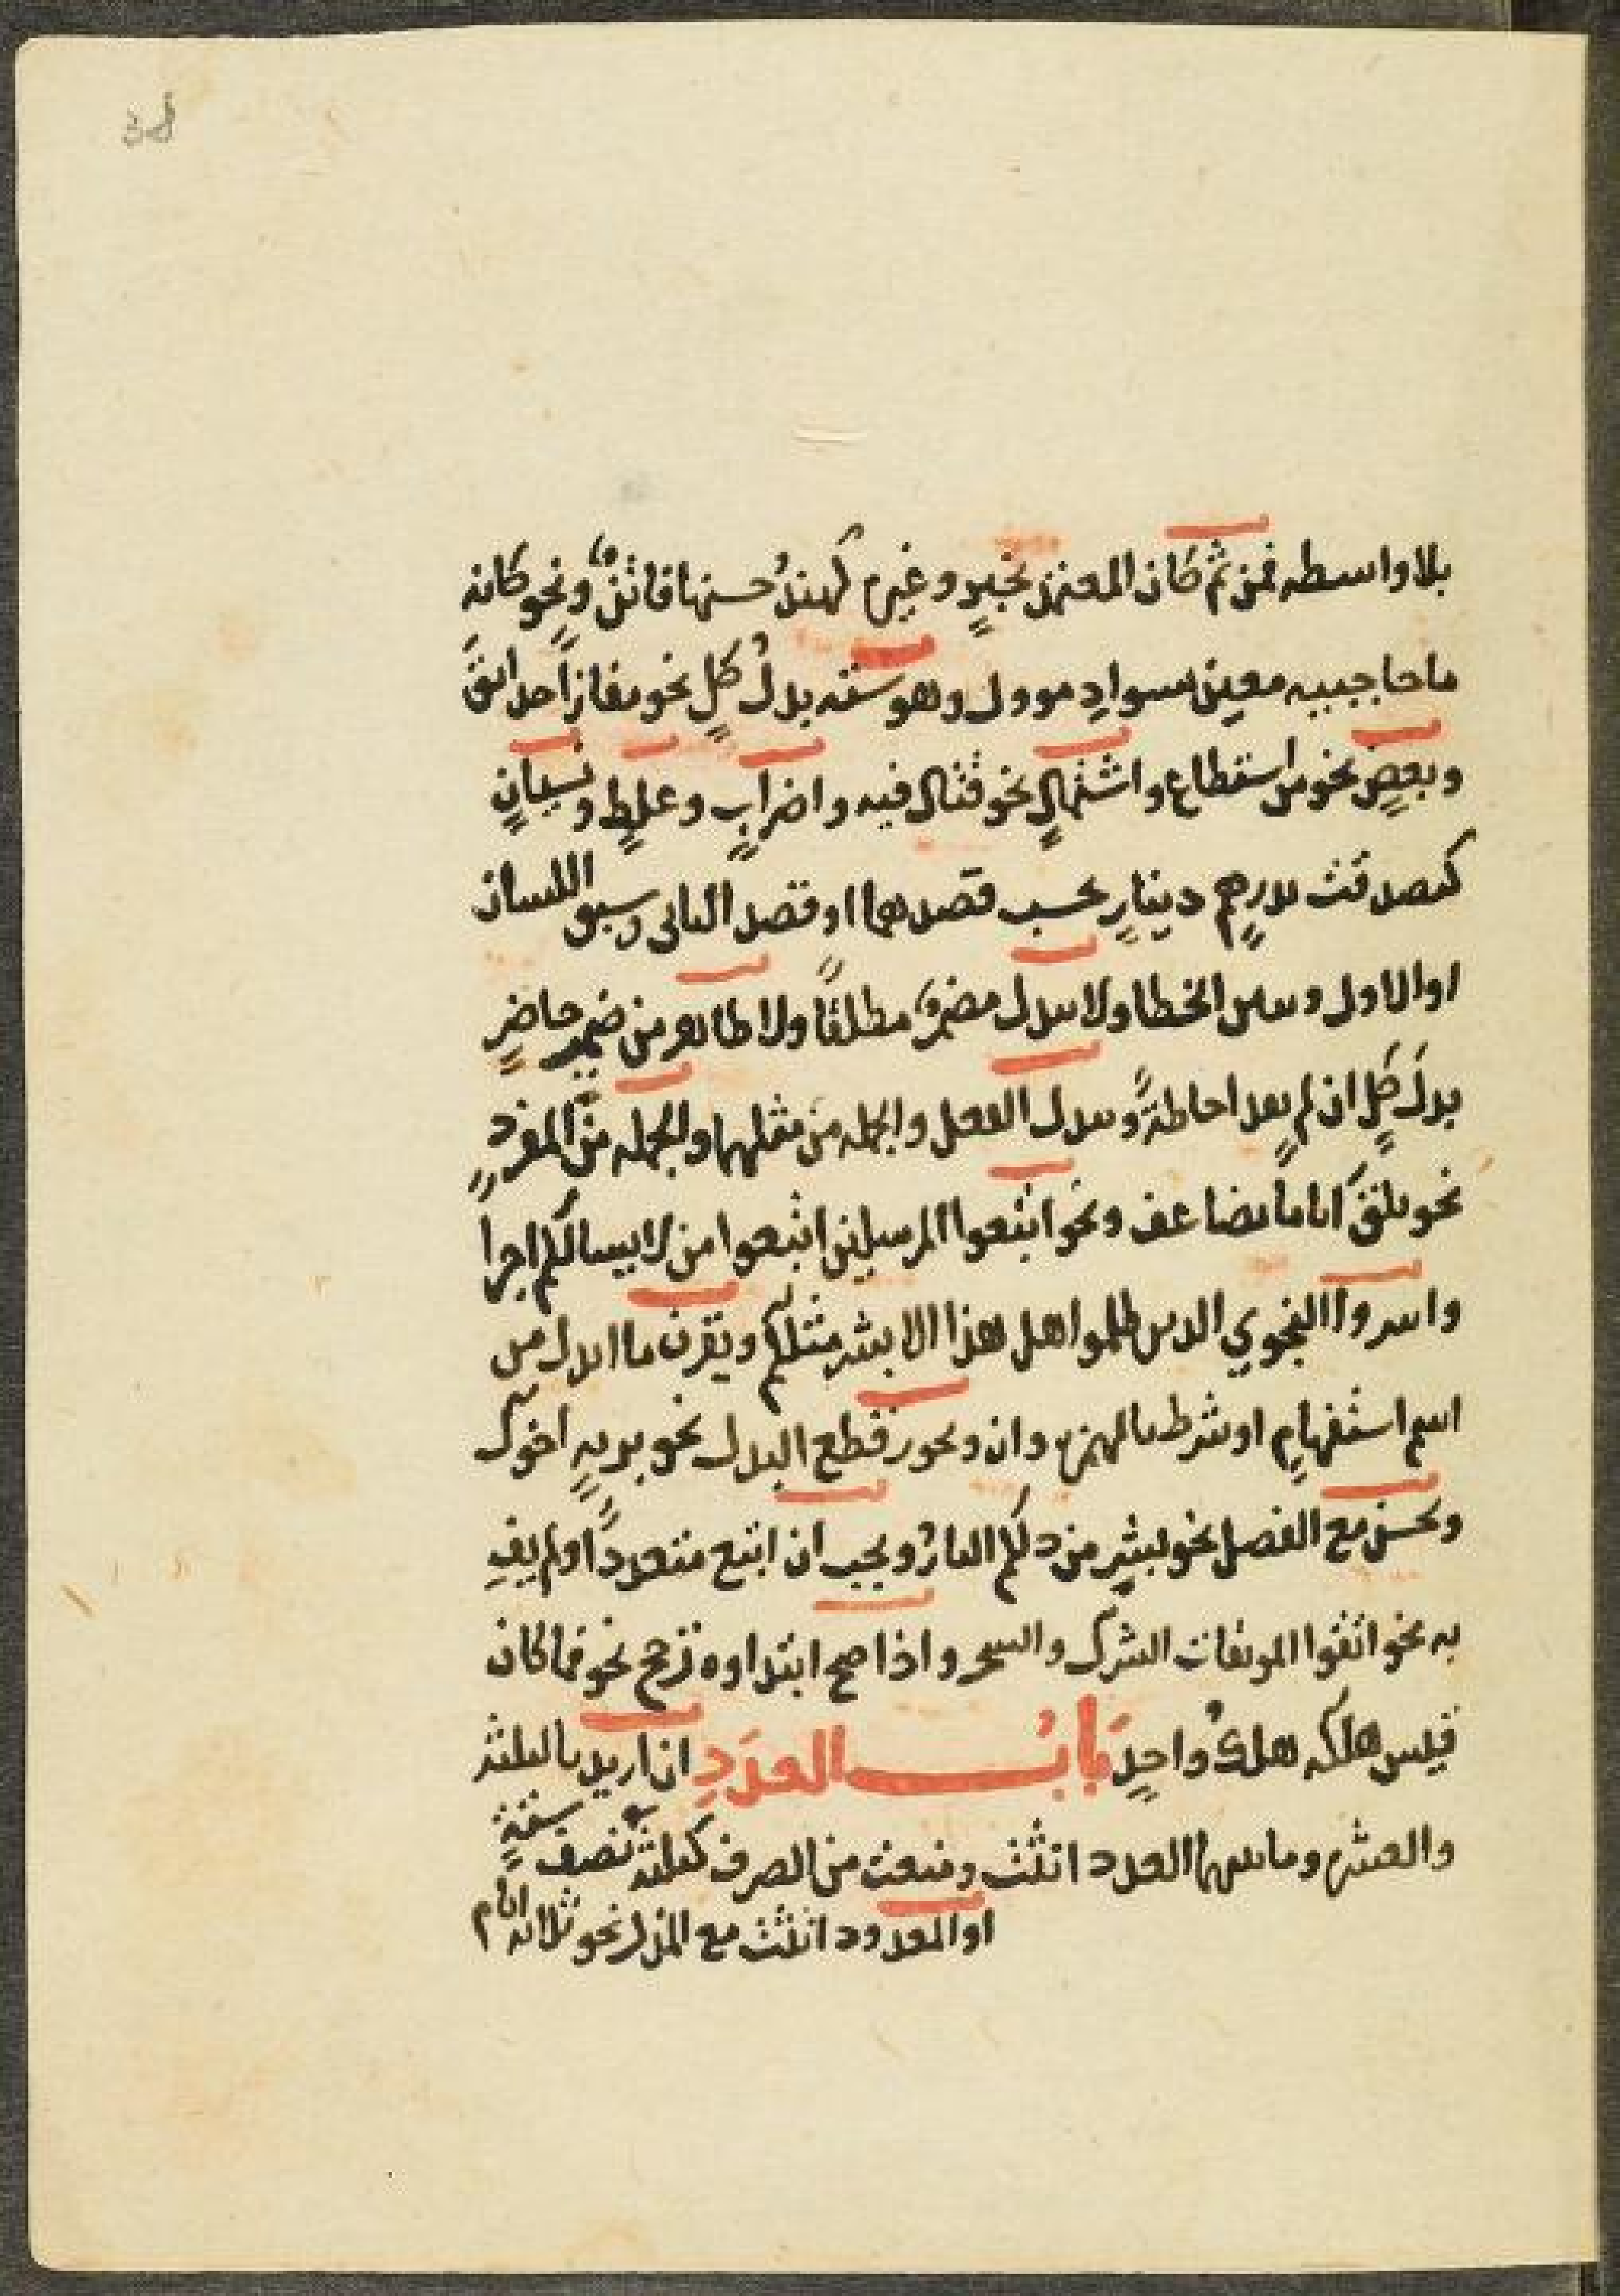 بلا واسطه فمن ثم كان المعتمد بخبرٍ وغيره كهندٌ حسنها فاتنٌ ونحو كانه
ما حاجبيه معين بسوادِ موول وهو ستة بدلُ كلٍ نحو مفازاً حدائقَ
وبعضٍ نحو من استطاع واشتمالٍ نحو قتال فيه واضرابٍ وغلطٍ ونسيانٍ
كتصدقت بدرهمٍ دينارٍ بحسب قصدهما او قصد الثانى وسبق اللسان
او الاول وتبين الخطا ولا يبدل مضمرٌ مطلقًا ولا ظاهر من ضمير حاضرٍ
بدلَ كلٍ ان لم يفد احاطةً ويبدل الفعل والجمله من مثلهما والجمله من المفردِ
نحو يلقَ اثاما يضاعف ونحو اتبعوا المرسلين اتبعوا من لا يسالكم اجرا
واسروا النجوي الدين ظلموا هل هذا الا بشر مثلكم ويقرن ما ابدل من
اسم استفهامٍ او شرط بالهمزه وان ويجوز قطع البدل نحو بزيدٍ اخوك
ويحسن مع الفصل نحو بشرٍ من ذلكم النارُ ويجب ان اتبع متعدداً ولم يفِ
به نحو اتقوا الموبقات الشرك والسحر واذا صح ابتداوه رجح نحو فما كان
قيس هلكه هلكُ واحدٍ بَابُ العدَدِ ان اريد بالثلثه
والعشره وما بينهما العدد انثت ومنعت من الصرف كثلثةُ نصف ستةٍ
او المعدود انثت مع المذكر نحو ثلاثه ايام